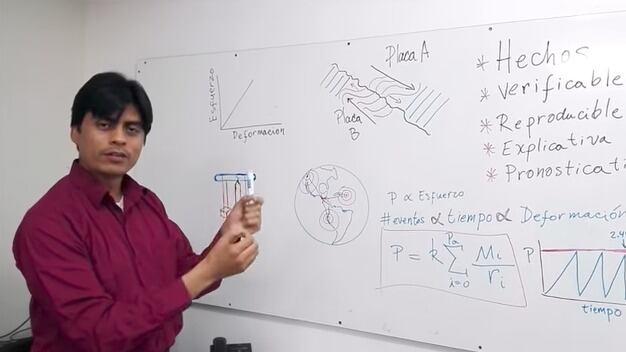 Esfuerzo
Deformacion
Placa A
Placa
B
* Hechos
* Verificable
* Reproducible
* Explicativa
* Pronosticati
P ∝ Esfuerzo
#eventos ∝ tiempo ∝ Deformación
P = k ∑ Mi/ri
Pa
i=0
P
2.4
tiempo